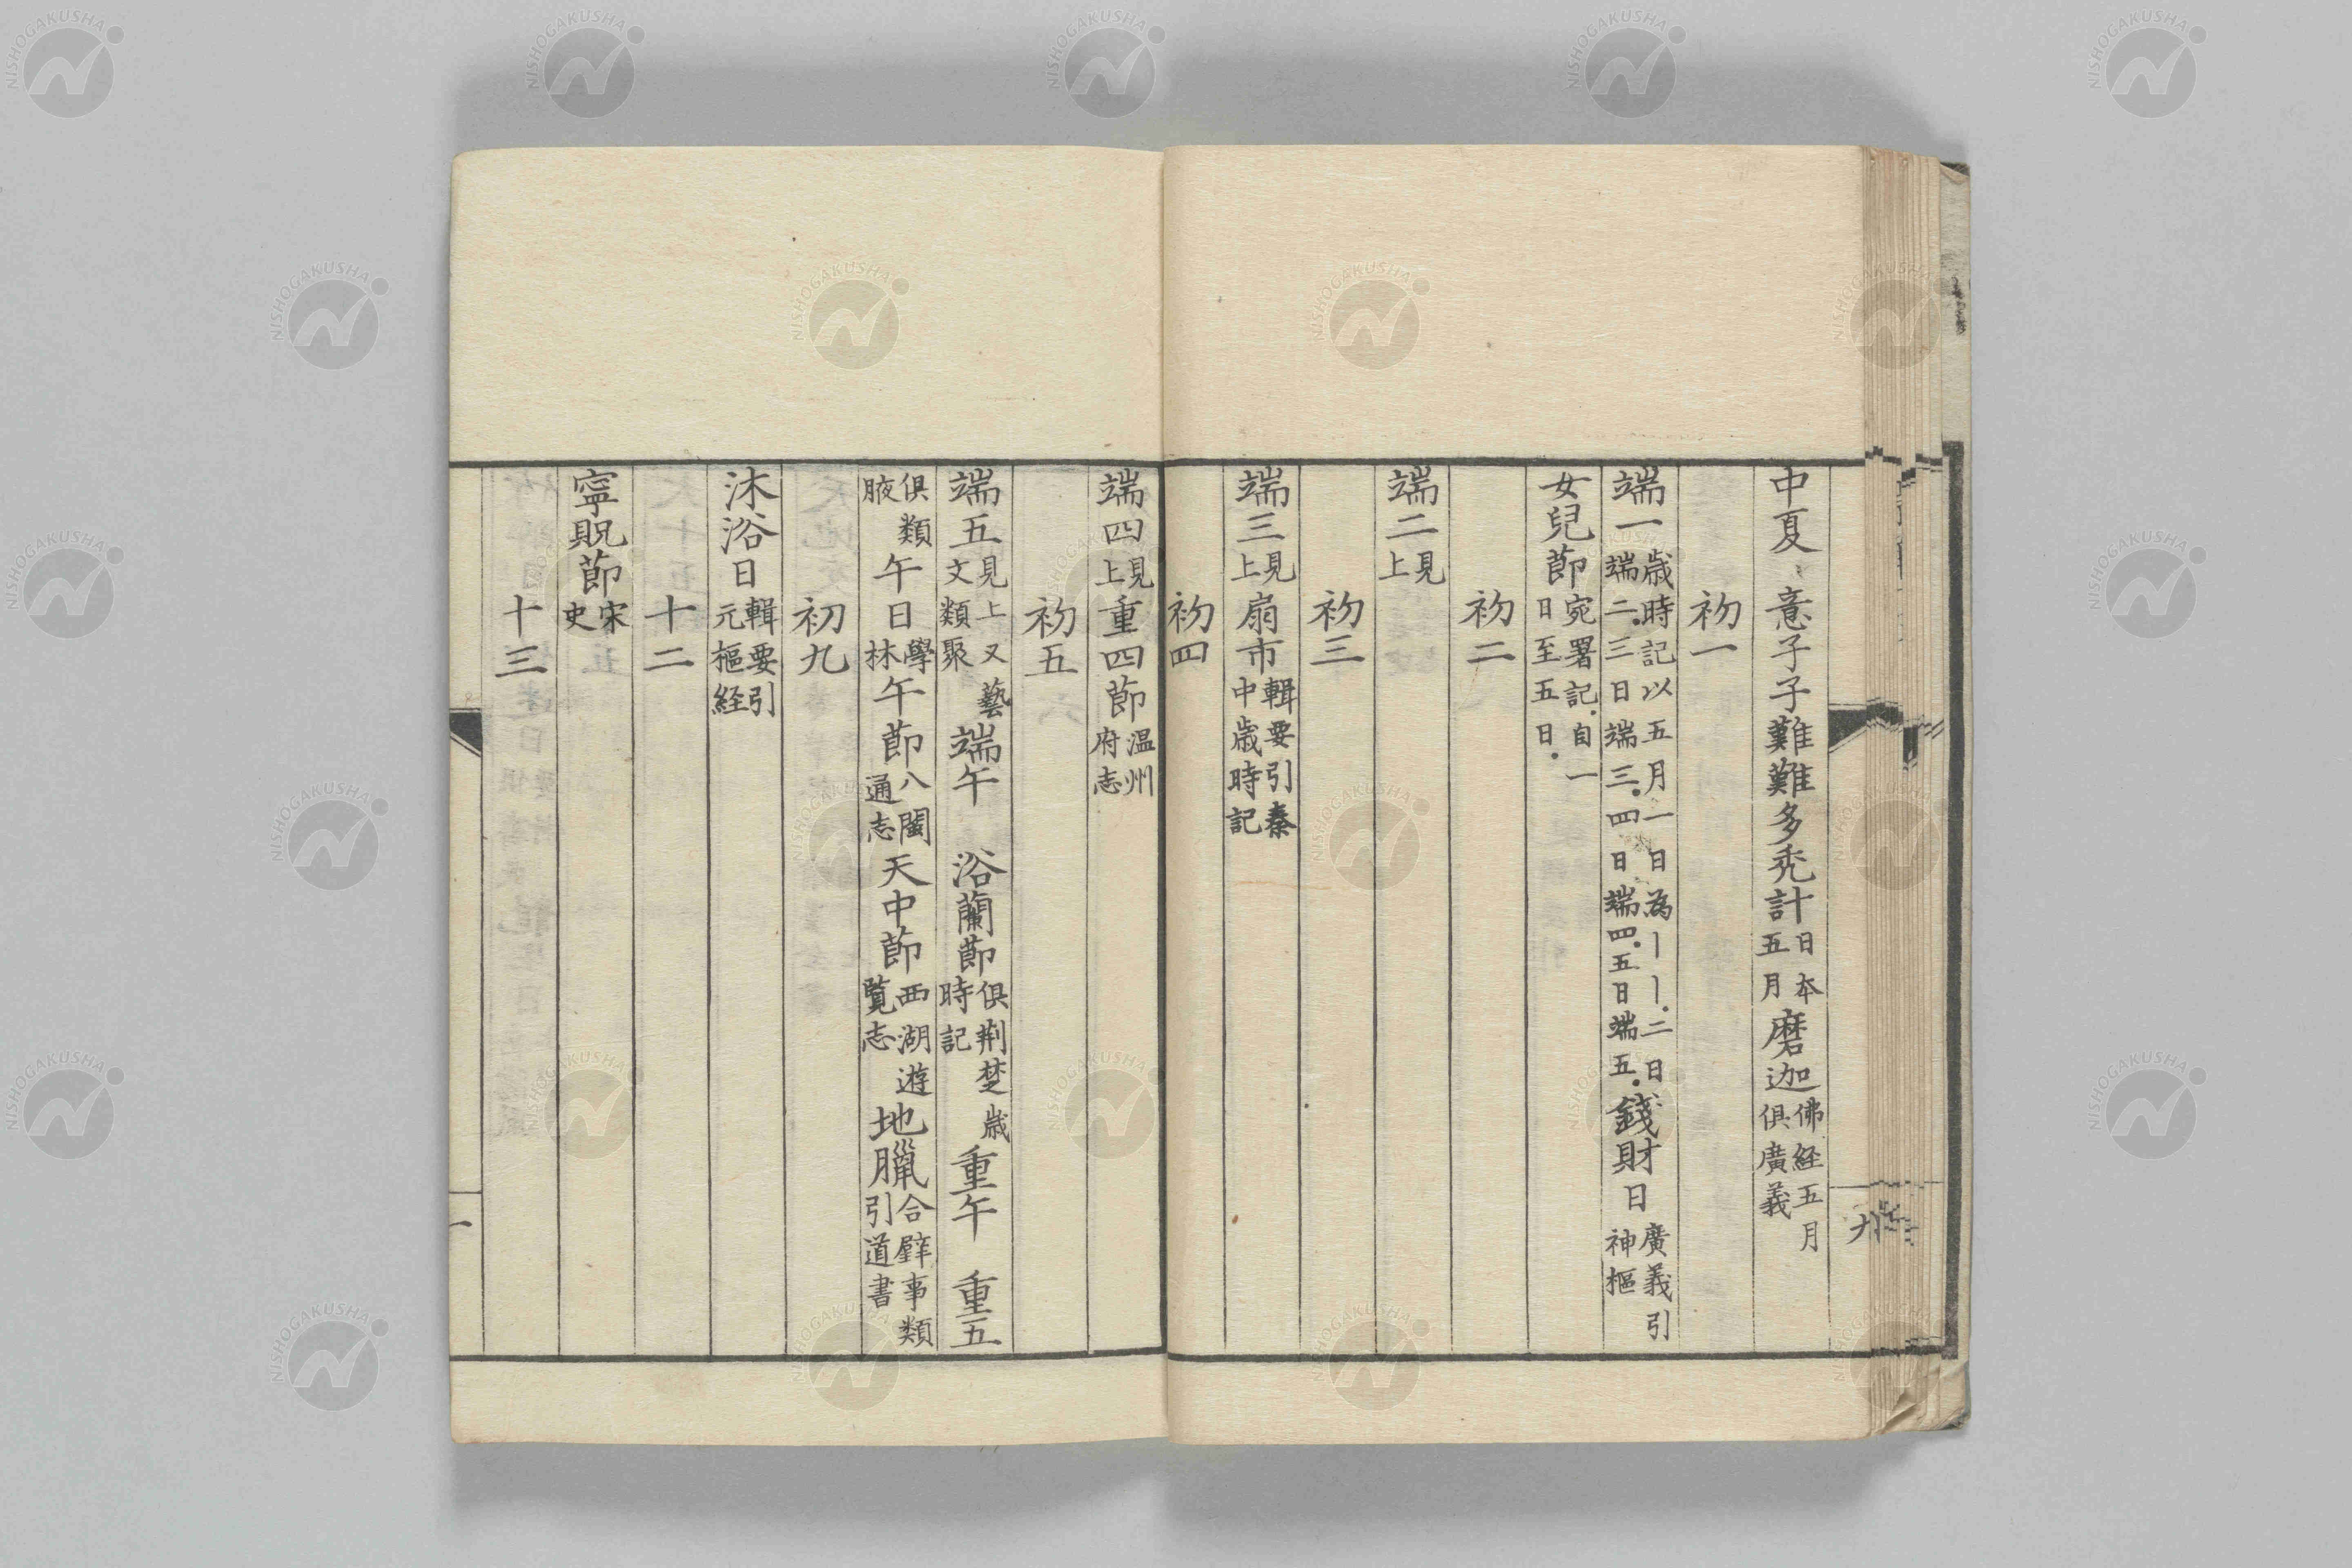 中夏 意子子難難多禿計日本五月磨迦佛経五月俱廣義
初一
端一歳時記以五月一日為〡〡二日端二三日端三四日端四五日端五錢財日廣義引神樞
女兒莭宛署記自一日至五日
初二
端二見上
初三
端三見上扇市輯要引秦中歳時記
初四
端四見上重四莭温州府志
初五
端五見上又藝文類聚端午 浴蘭莭俱荆楚歳時記重午 重五
俱類腋午日學林午莭八閩通志天中莭西湖遊覧志地臘合璧事類引道書
初九
沐浴日輯要引元樞経
十二
寧貺莭宋史
十三
NISHOGAKUSHA